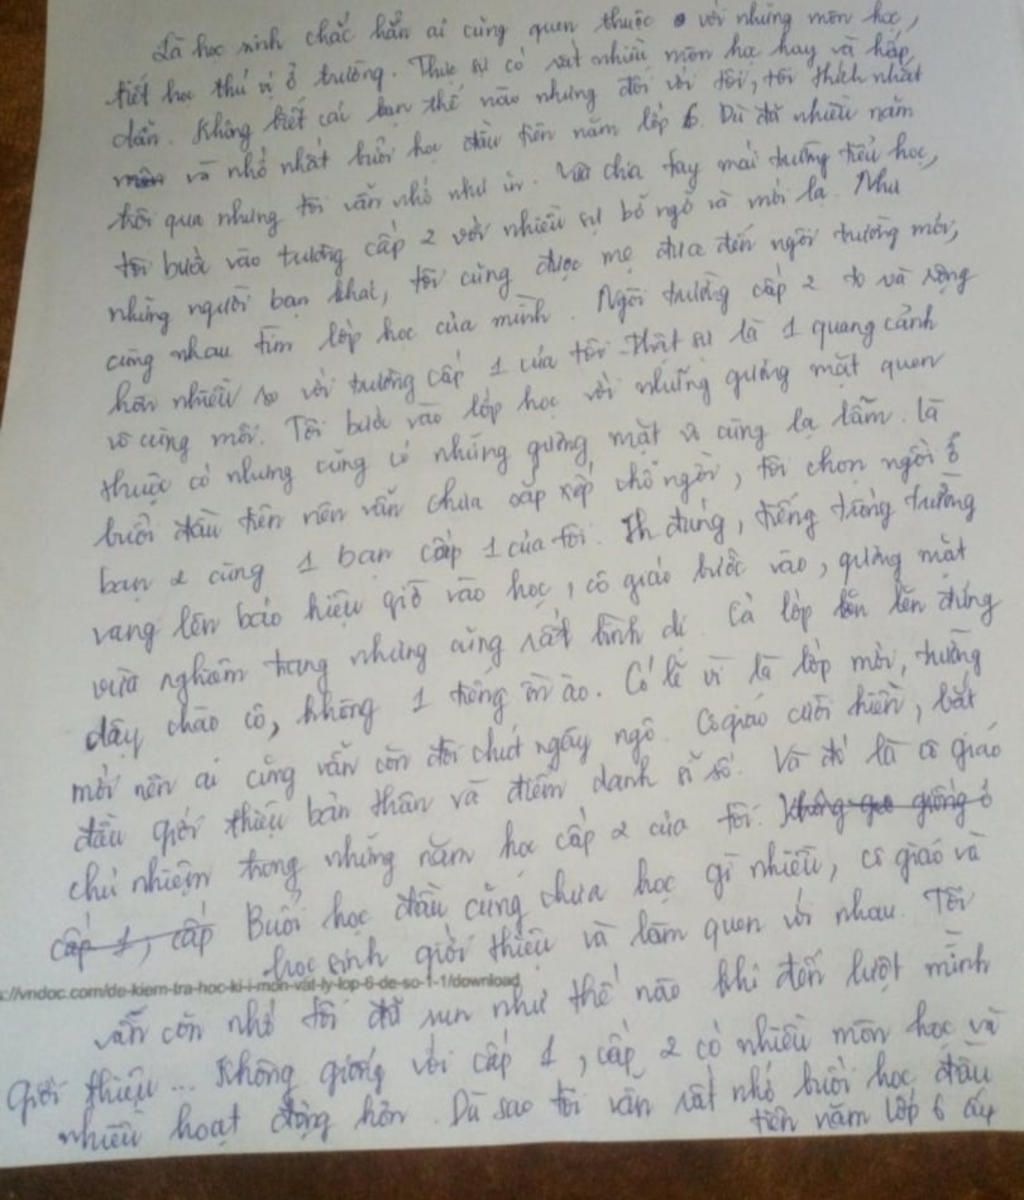 Là học sinh chắc hẳn ai cũng quen thuộc với những môn học,
tiết học thú vị ở trường. Thực sự có rất nhiều môn học hay và hấp
dẫn. Không biết các bạn thế nào nhưng đối với tôi, tôi thích nhất
và nhớ nhất buổi học đầu tiên năm lớp 6. Dù đã nhiều năm
trôi qua nhưng tôi vẫn nhớ như in. Vừa chia tay mái trường tiểu học,
tôi bước vào trường cấp 2 với nhiều sự bỡ ngỡ và mới lạ. Như
những người bạn khác, tôi cũng được mẹ đưa đến ngôi trường mới,
cùng nhau tìm lớp học của mình. Ngôi trường cấp 2 to và rộng
hơn nhiều so với trường cấp 1 của tôi. Thật sự là 1 quang cảnh
vô cùng mới. Tôi bước vào lớp học với những gương mặt quen
thuộc có nhưng cũng có những gương mặt vô cùng lạ lẫm. Là
buổi đầu tiên nên vẫn chưa sắp xếp chỗ ngồi, tôi chọn ngồi ở
bàn 2 cùng 1 bạn cấp 1 của tôi. 7h đúng, tiếng trống trường
vang lên báo hiệu giờ vào học, cô giáo bước vào, gương mặt
vừa nghiêm trang nhưng cũng rất bình dị. Cả lớp liền đứng
dậy chào cô, không 1 tiếng ồn ào. Có lẽ vì là lớp mới, trường
mới nên ai cũng vẫn còn đôi chút ngây ngô. Cô giáo cười hiền, bắt
đầu giới thiệu bản thân và điểm danh sĩ số. Và đó là cô giáo
chủ nhiệm trong những năm học cấp 2 của tôi. Không giống ở
cấp 1, cấp Buổi học đầu cũng chưa học gì nhiều, cô giáo và
học sinh giới thiệu và làm quen với nhau. Tôi
s://vndoc.com/de-kiem-tra-hoc-ki-i-mon-vat-ly-lop-6-de-so-1-1/download
vẫn còn nhớ tôi đã run như thế nào khi đến lượt mình
giới thiệu... Không giống với cấp 1, cấp 2 có nhiều môn học và
nhiều hoạt động hơn. Dù sao tôi vẫn rất nhớ buổi học đầu
tiên năm lớp 6 ấy